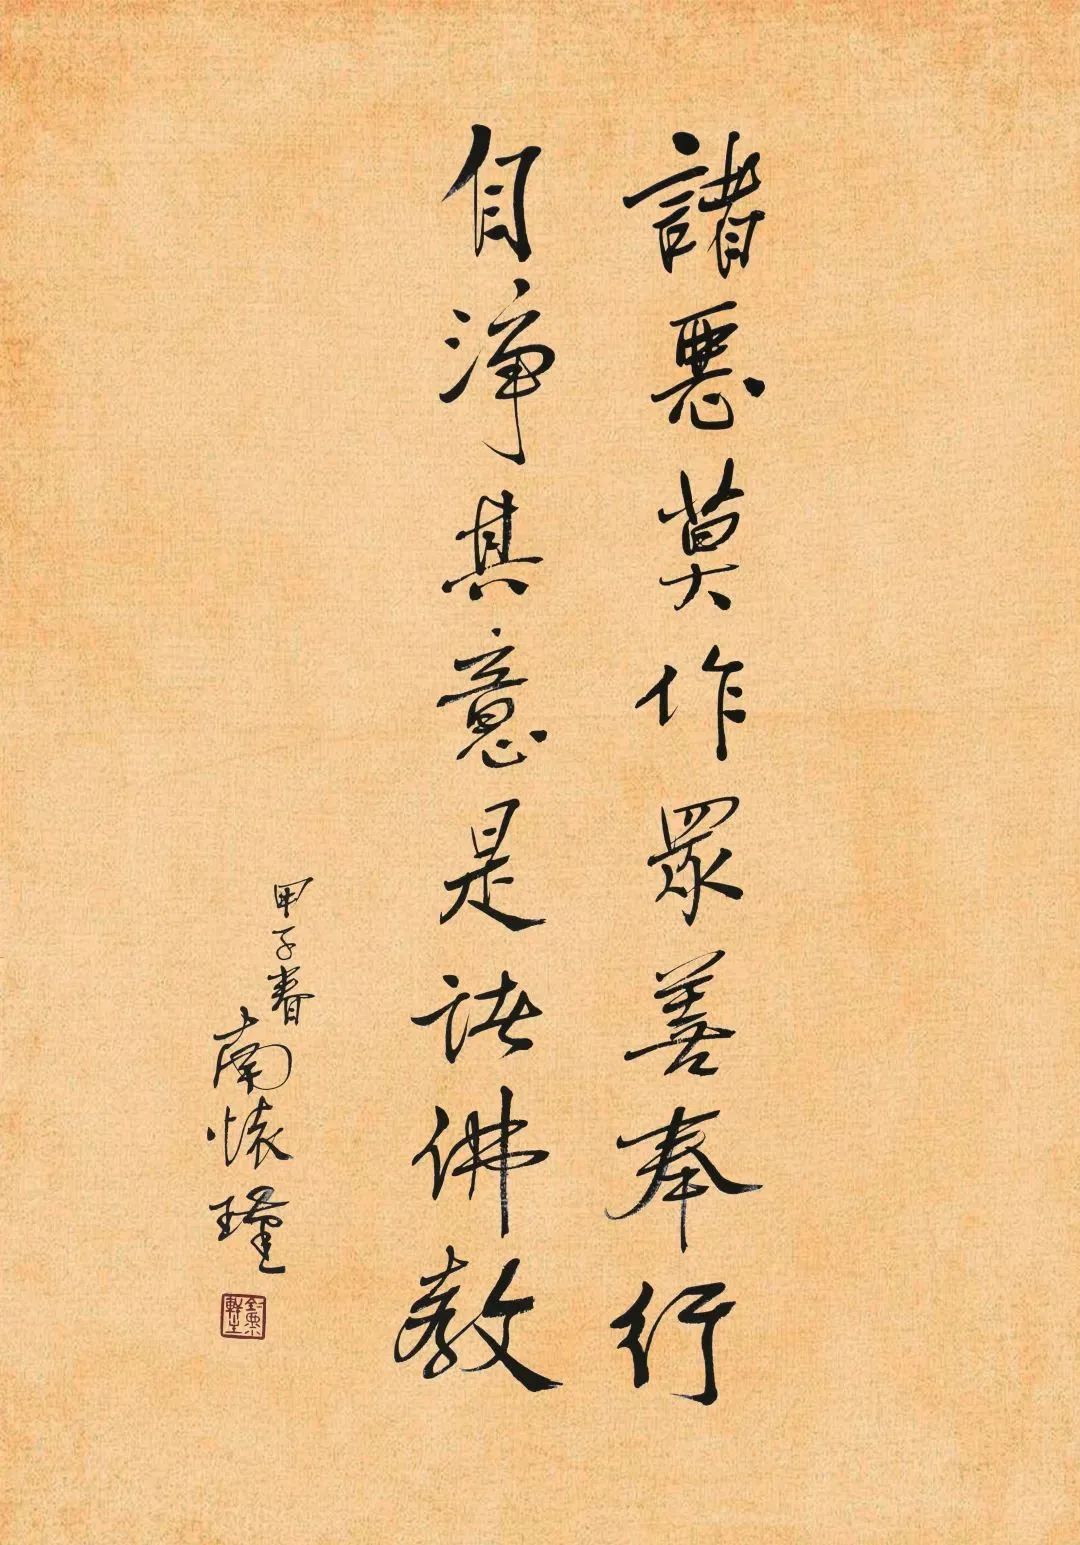 諸惡莫作眾善奉行
自淨其意是諸佛教
甲子春
南懷瑾